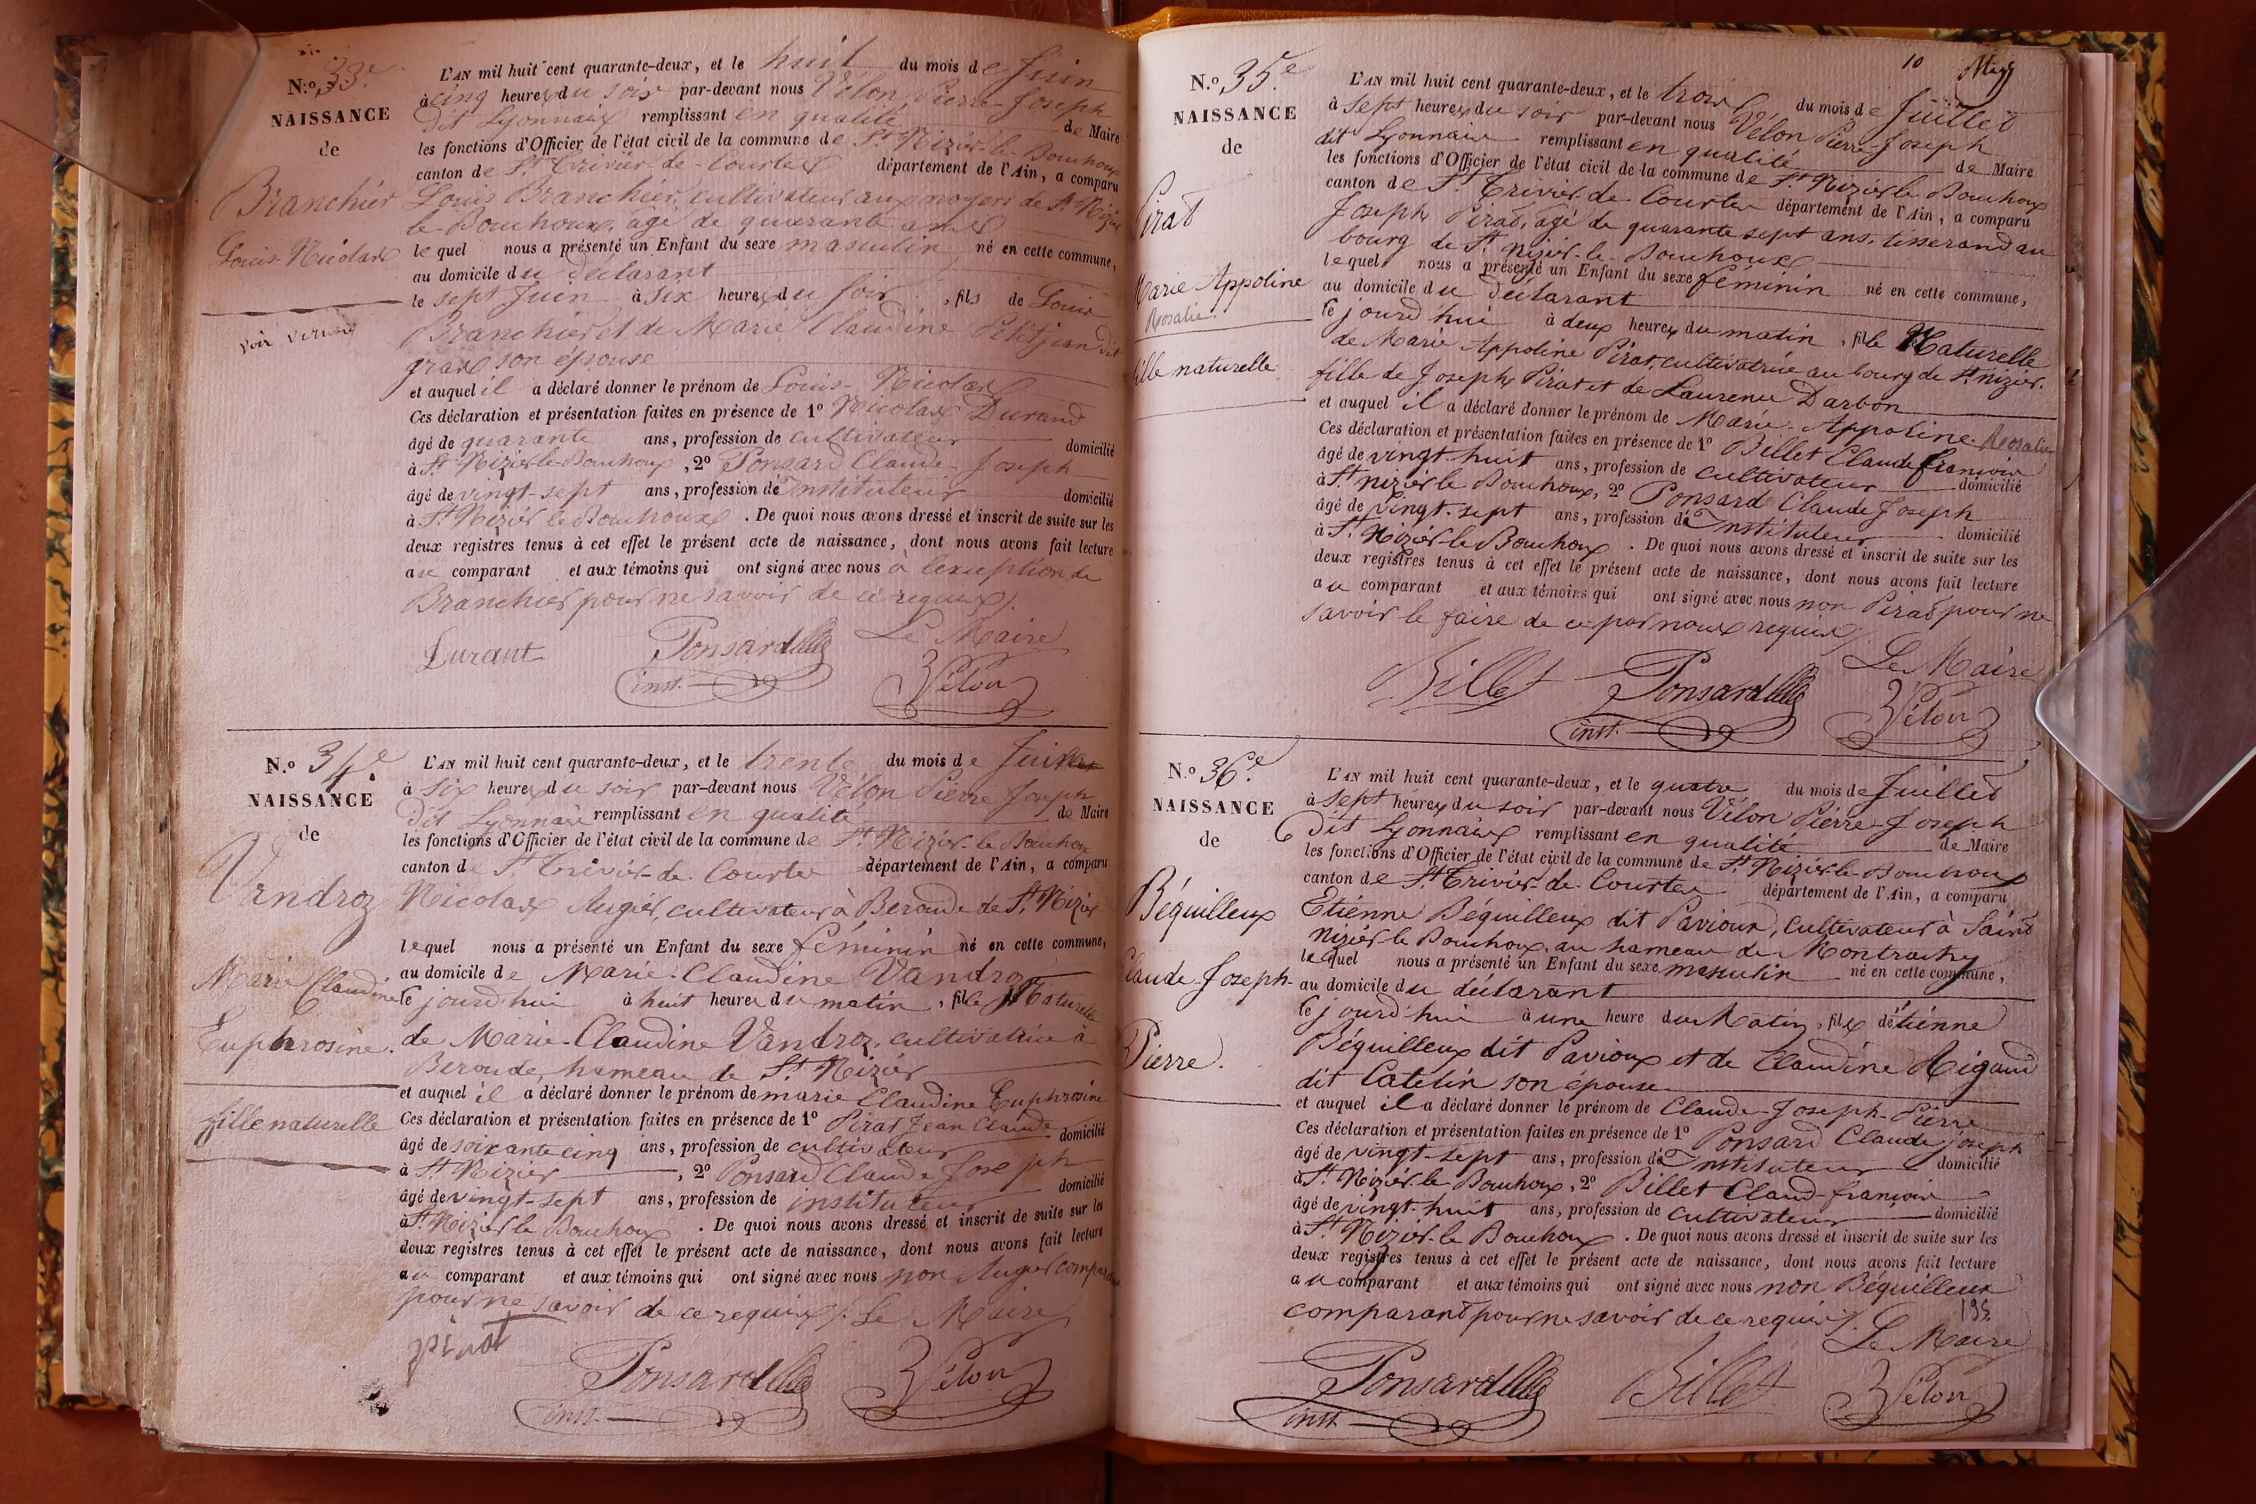 N.º 33.e
NAISSANCE
de
Branchier
Louis Nicolas
voir verning
L'AN mil huit cent quarante-deux, et le huit du mois de Juin
à cinq heures du soir par-devant nous Vélon Pierre-Joseph
dit Lyonnais remplissant en qualité de Maire
les fonctions d'Officier de l'état civil de la commune de St Nizier-le-Bouchoux
canton de St Trivier-de-Courtes département de l'Ain, a comparu
Louis Branchier, cultivateur aux noyers de St Nizier
le-Bouchoux, âgé de quarante ans
lequel nous a présenté un Enfant du sexe masculin né en cette commune,
au domicile du déclarant
le sept Juin à six heures du soir, fils de Louis
Branchier et de Marie Claudine Petitjean dit
gras son épouse
et auquel il a déclaré donner le prénom de Louis-Nicolas
Ces déclaration et présentation faites en présence de 1º Nicolas Durand
âgé de quarante ans, profession de cultivateur domicilié
à St Nizier-le-Bouchoux, 2º Ponsard Claude-Joseph
âgé de vingt-sept ans, profession de Instituteur domicilié
à St Nizier le Bouchoux. De quoi nous avons dressé et inscrit de suite sur les
deux registres tenus à cet effet le présent acte de naissance, dont nous avons fait lecture
au comparant et aux témoins qui ont signé avec nous à l'exception de
Branchier pour ne savoir de ce requis /.
Durant Ponsard Le Maire
inst. Vélon
N.º 34e.
NAISSANCE
de
Vandroz
Marie Claudine
Euphrosine.
fille naturelle
L'AN mil huit cent quarante-deux, et le trente du mois de Juin
à six heures du soir par-devant nous Vélon Pierre Joseph
dit Lyonnais remplissant en qualité de Maire
les fonctions d'Officier de l'état civil de la commune de St Nizier-le-Bouchoux
canton de St Trivier-de-Courtes département de l'Ain, a comparu
Nicolas Augier, cultivateur à Beroude de St Nizier
lequel nous a présenté un Enfant du sexe féminin né en cette commune,
au domicile de Marie-Claudine Vandroz
le jourd'hui à huit heures du matin, fille Naturelle
de Marie-Claudine Vandroz, cultivatrice à
Beroude, hameau de St Nizier
et auquel il a déclaré donner le prénom de marie Claudine Euphrosine
Ces déclaration et présentation faites en présence de 1º Pirat Jean Claude
âgé de soixante cinq ans, profession de cultivateur domicilié
à St Nizier, 2º Ponsard Claude Joseph
âgé de vingt-sept ans, profession de instituteur domicilié
à St Nizier le Bouchoux. De quoi nous avons dressé et inscrit de suite sur les
deux registres tenus à cet effet le présent acte de naissance, dont nous avons fait lecture
au comparant et aux témoins qui ont signé avec nous non Augier comparant
pour ne savoir de ce requis /. Le Maire
pirat
Ponsard Vélon
inst.
10
N.º 35e.
NAISSANCE
de
Pirat
Marie Appoline
Rosalie.
fille naturelle
L'AN mil huit cent quarante-deux, et le trois du mois de Juillet
à sept heures du soir par-devant nous Vélon Pierre-Joseph
dit Lyonnais remplissant en qualité de Maire
les fonctions d'Officier de l'état civil de la commune de St Nizier-le-Bouchoux
canton de St Trivier de Courtes département de l'Ain, a comparu
Joseph Pirat, âgé de quarante sept ans, tisserand au
bourg de St nizier-le-Bouchoux
lequel nous a présenté un Enfant du sexe féminin né en cette commune,
au domicile du déclarant
le jourd'hui à deux heures du matin, fille Naturelle
de Marie Appoline Pirat, cultivatrice au bourg de St nizier.
fille de Joseph Pirat et de Laurence Darbon
et auquel il a déclaré donner le prénom de Marie-Appoline-Rosalie
Ces déclaration et présentation faites en présence de 1º Billet Claude françois
âgé de vingt huit ans, profession de cultivateur domicilié
à St nizier le Bouchoux, 2º Ponsard Claude Joseph
âgé de vingt-sept ans, profession de Instituteur domicilié
à St Nizier le Bouchoux. De quoi nous avons dressé et inscrit de suite sur les
deux registres tenus à cet effet le présent acte de naissance, dont nous avons fait lecture
au comparant et aux témoins qui ont signé avec nous non Pirat pour ne
savoir le faire de ce par nous requis /.
Le Maire
Billet Ponsard Vélon
inst.
N.º 36e.
NAISSANCE
de
Béguilleux
Claude-Joseph-
Pierre.
L'AN mil huit cent quarante-deux, et le quatre du mois de Juillet
à sept heures du soir par-devant nous Vélon Pierre-Joseph
dit Lyonnais remplissant en qualité de Maire
les fonctions d'Officier de l'état civil de la commune de St Nizier-le-Bouchoux
canton de St Trivier-de-Courtes département de l'Ain, a comparu
Etienne Béguilleux dit Pavioux, cultivateur à Saint
Nizier le Bouchoux, au hameau de Montrachy
lequel nous a présenté un Enfant du sexe masculin né en cette commune,
au domicile du déclarant
le jourd'hui à une heure du Matin, fils d'étienne
Béguilleux dit Pavioux et de Claudine Rigaud
dit Catelin son épouse
et auquel il a déclaré donner le prénom de Claude-Joseph-Pierre
Ces déclaration et présentation faites en présence de 1º Ponsard Claude joseph
âgé de vingt-sept ans, profession de Instituteur domicilié
à St Nizier le Bouchoux, 2º Billet Claud-françois
âgé de vingt-huit ans, profession de cultivateur domicilié
à St Nizier-le Bouchoux. De quoi nous avons dressé et inscrit de suite sur les
deux registres tenus à cet effet le présent acte de naissance, dont nous avons fait lecture
au comparant et aux témoins qui ont signé avec nous non Béguilleux
comparant pour ne savoir de ce requis /.
195
Le Maire
Ponsard Billet Vélon
inst.